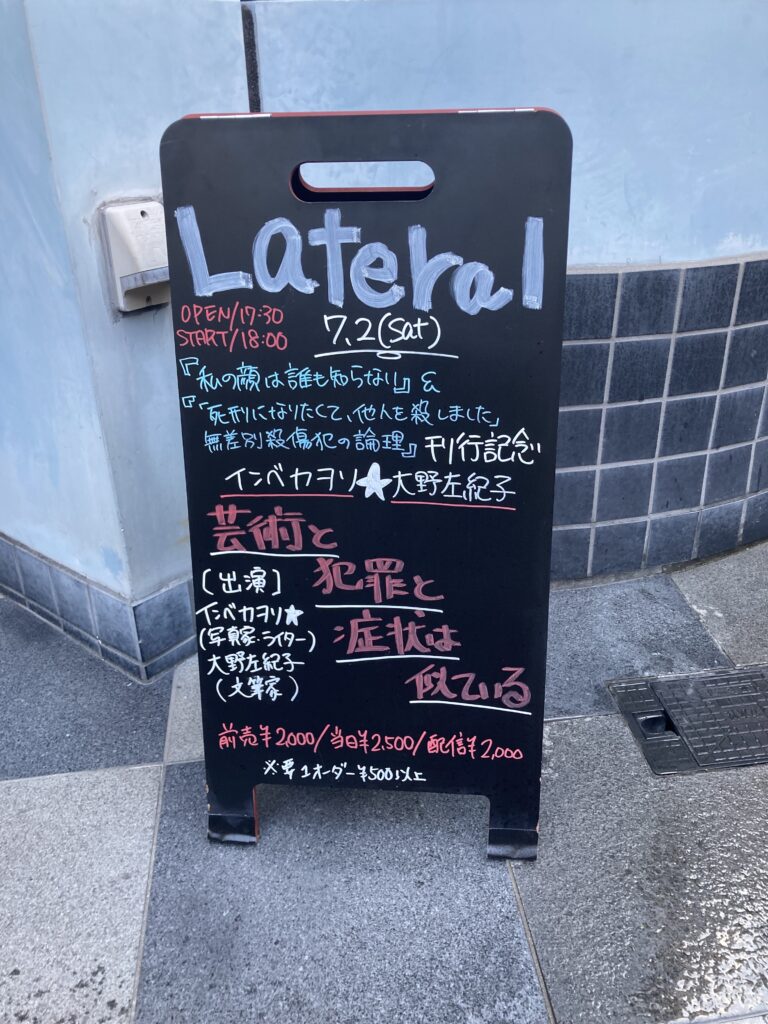 Lateral
OPEN/17:30
START/18:00
7.2(sat)
『私の顔は誰も知らない』&
『「死刑になりたくて、他人を殺しました」
無差別殺傷犯の論理』刊行記念
インベカヲリ★大野左紀子
芸術と
犯罪と
症状は
似ている
[出演]
インベカヲリ★
(写真家・ライター)
大野左紀子
(文筆家)
前売¥2,000/当日¥2,500/配信¥2,000
※要1オーダー¥500以上